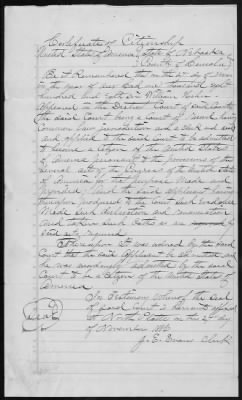 Certificate of Citizenship
United States of America, State of Nebraska
County of Lincoln
Be it Remembered that on the day of
in the year of our Lord one thousand eight
hundred and William
Appeared in the District Court of said County
the said Court being a court of record having
Common law jurisdiction and a clerk and seal
and applied to the said Court to be admitted
to become a citizen of the United States
of America pursuant to the provisions of the
several acts of the Congress of the United States
of America for that purpose made and
provided And the said applicant having
thereupon produced to the Court such evidence
Made such declaration and renunciation
and taken such oaths as are by
said acts required
Whereupon it was ordered by the said
Court that the said applicant be admitted and
he was accordingly admitted by the said
Court to be a citizen of the United States of
America
In Testimony whereof the seal
of said court is hereunto affixed
at North Platte on this day
of November
Seal
Evans Clerk